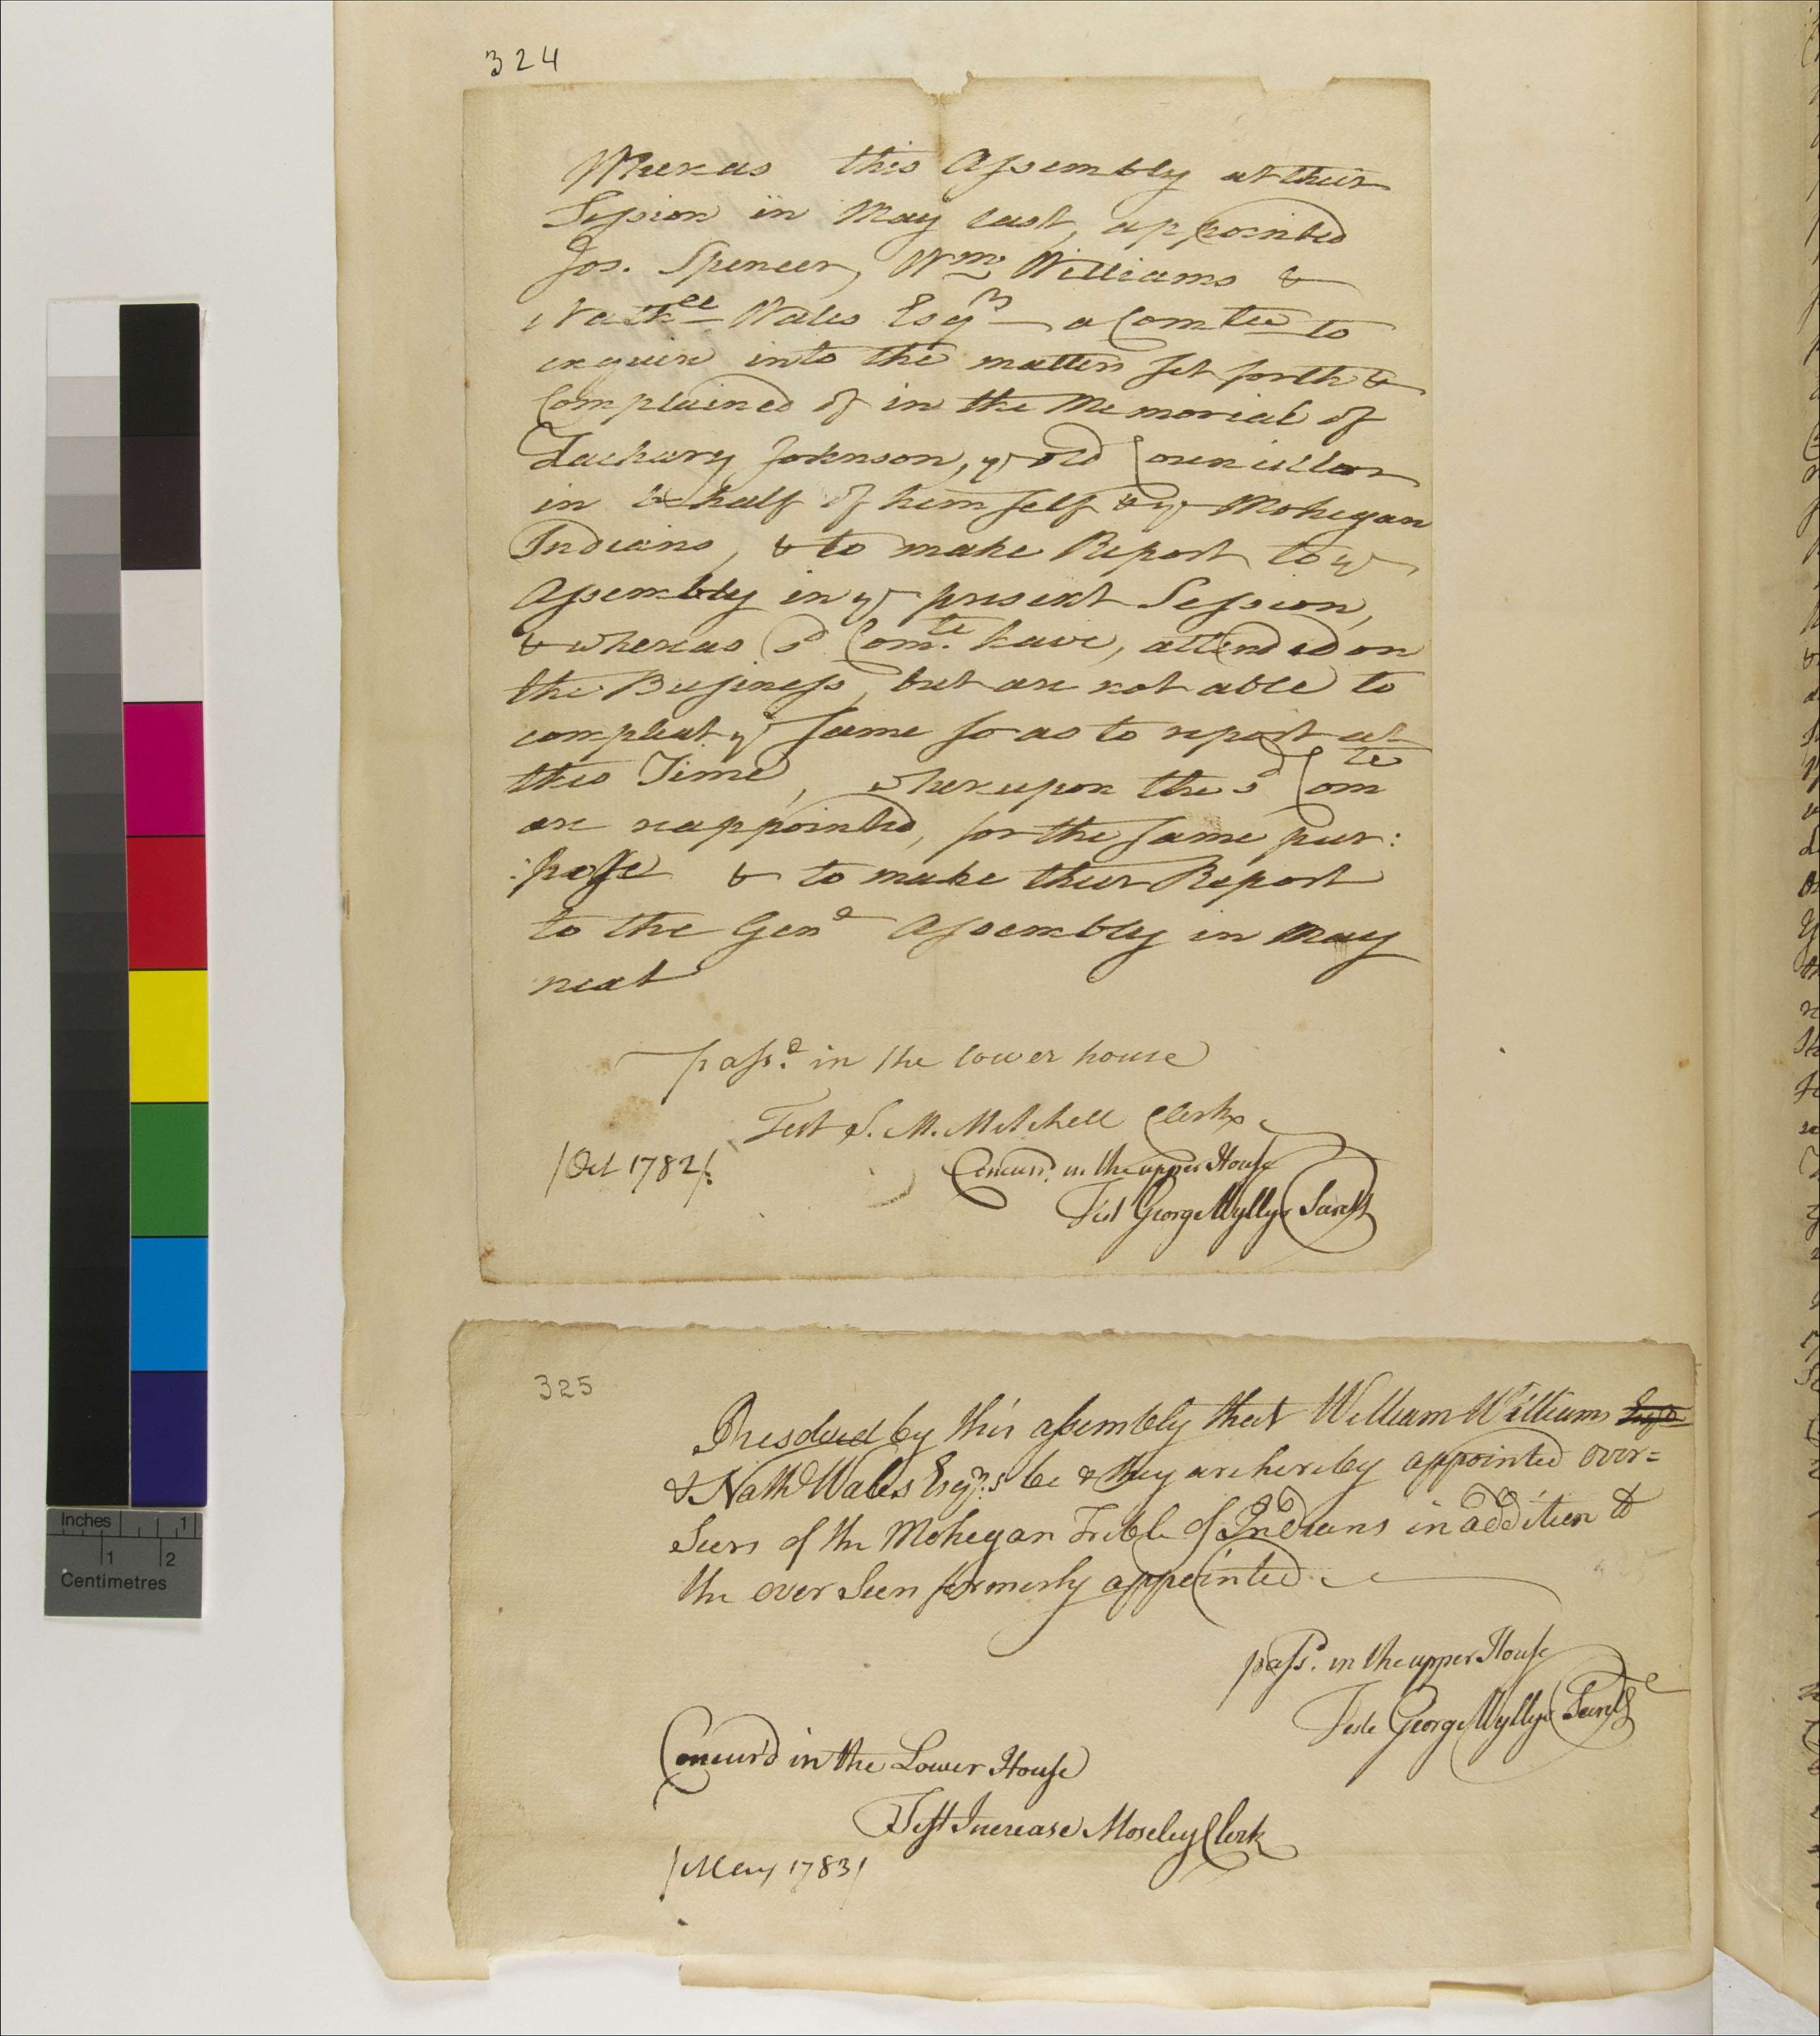 324
Whereas this Assembly at their
Session in May last, appointed
Jos. Spencer, Wm Williams &
Nathel Wales Esqrs a Comtee to
enquire into the matters set forth &
Complained of in the Memorial of
Zachary Johnson, ye old Councillor
in behalf of himself & ye Mohegan
Indians, & to make Report to ye
Assembly in ye present Session,
& whereas sd Comte have, attended on
the Business, but are not able to
compleat ye same so as to report at
this Time, whereupon the sd Comte
are reappointed, for the same pur:
:pose & to make their Report
to the Genl Assembly in May
next
passd in the lower house
Test S. M. Mitchell Clerk
/Oct 1782/.
Concurrd in the upper House
Test George Wyllys Secrety
325
Resolved by this assembly that William Williams Esqr
& Nathl Wales Esqrs be & they are hereby appointed over=
Seers of the Mohegan Tribe of Indians in addition to
the over Seers formerly appointed
passd in the upper House
Teste George Wyllys Secrety
Concur'd in the Lower House
Test Increase Moseley Clerk
/May 1783/
Inches 1
1 2
Centimetres